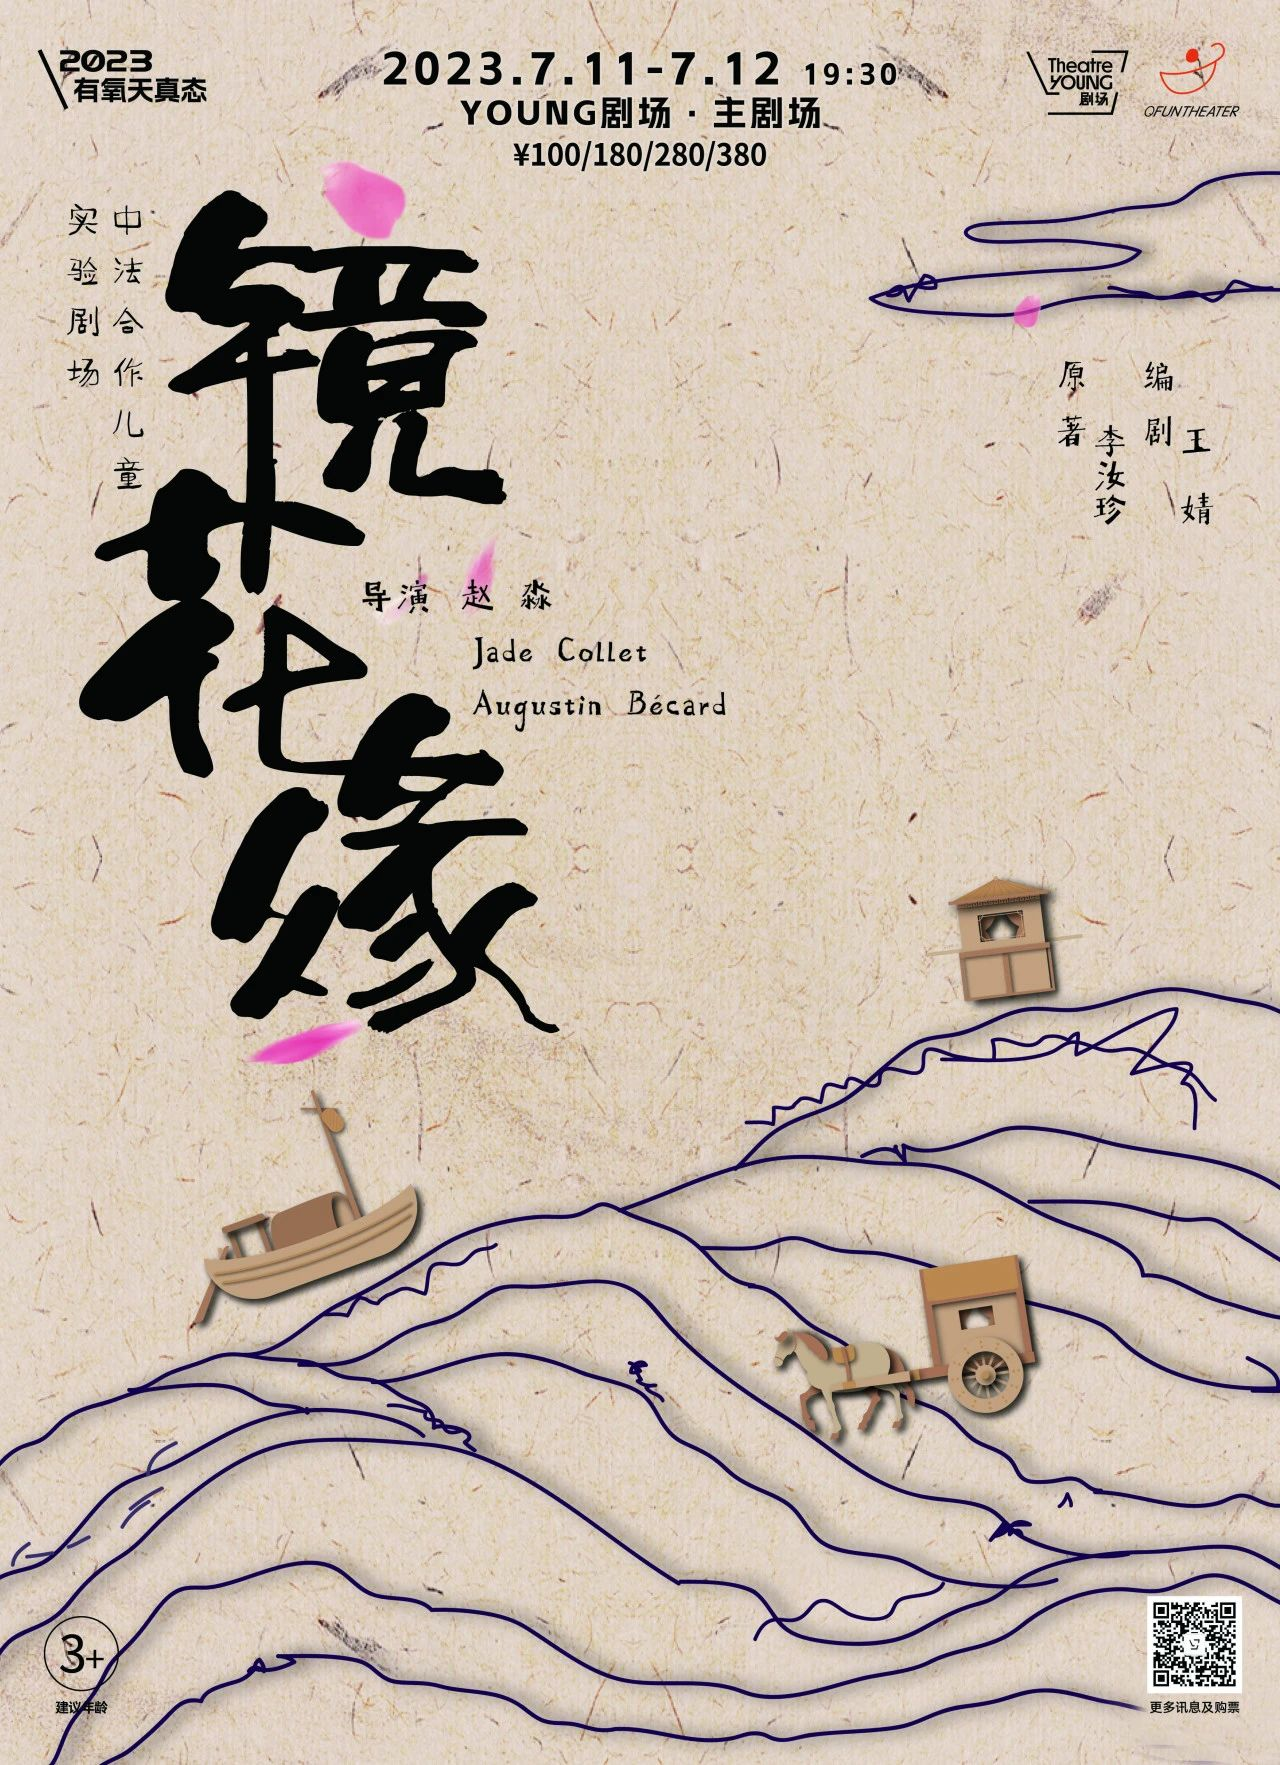 2023
有氧天真态
2023.7.11-7.12 19:30
YOUNG剧场·主剧场
¥100/180/280/380
Theatre
YOUNG
剧场
QFUNTHEATER
中法合作儿童
实验剧场
镜花缘
编剧
王婧
原著
李汝珍
导演 赵淼
Jade Collet
Augustin Bécard
3+
建议年龄
更多讯息及购票